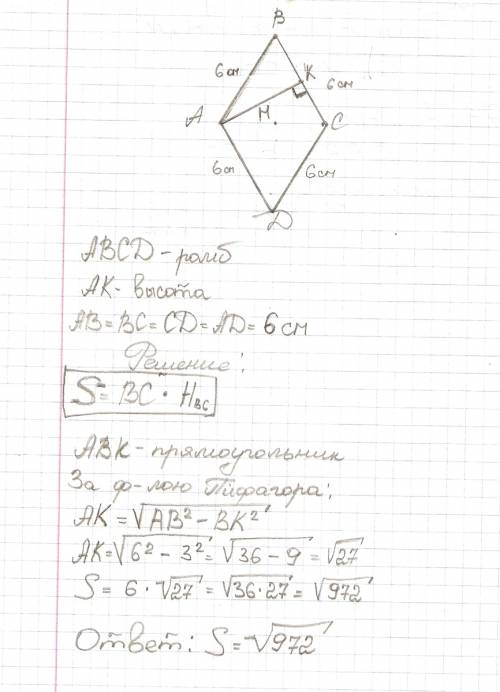 B
6см
K
6см
A
H
C
6см
6см
D
ABCD - ромб
AK - высота
AB = BC = CD = AD = 6 см
Решение:
S = BC · H_BC
ABK - прямоугольник
За ф-лою Пифагора:
AK = √AB² - BK²
AK = √6² - 3² = √36 - 9 = √27
S = 6 · √27 = √36·27 = √972
Ответ: S = √972